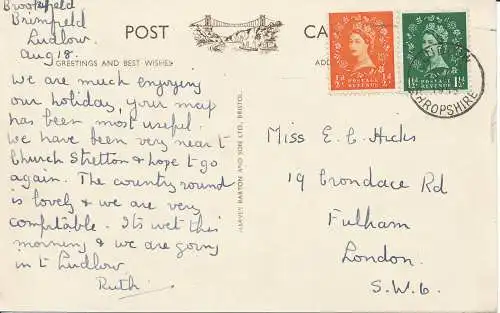 Brookfield
Brimfield
Ludlow.
Aug 18.
POST CA
GREETINGS AND BEST WISHES
ADD
We are much enjoying
our holiday, your map
has been most useful.
We have been very near t
Church Stretton & hope t go
again. The country round
is lovely & we are very
comfortable. Its wet this
morning & we are going
in t Ludlow.
Ruth
HARVEY BARTON AND SON LTD., BRISTOL.
½d ½d
POSTAGE REVENUE
1½d 1½d
POSTAGE REVENUE
SHROPSHIRE
Miss E. C. Hicks
19 Crondace Rd
Fulham
London.
S.W.6.